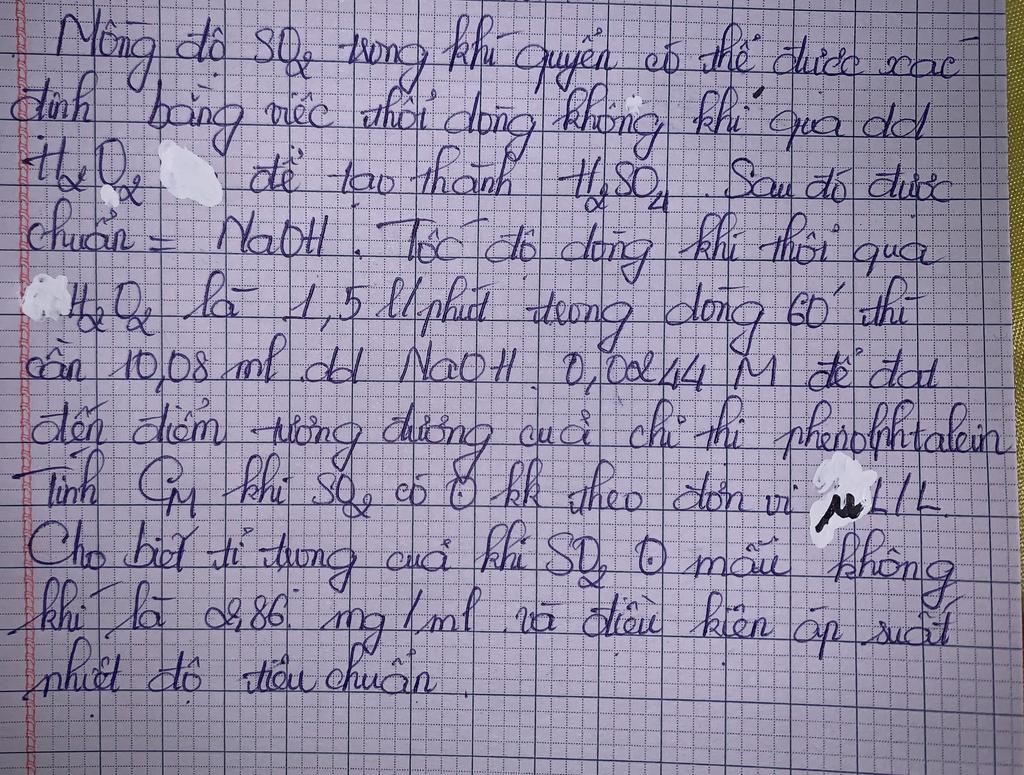 Nồng độ SO₂ trong khí quyển có thể được xác
định bằng việc thổi dòng không khí qua dd
H₂O₂ để tạo thành H₂SO₄. Sau đó được
chuẩn = NaOH. Tốc độ dòng khí thổi qua
H₂O₂ là 1,5 l/phút trong dòng 60' thì
cần 10,08 ml dd NaOH 0,00244 M để đạt
đến điểm tương đương của chỉ thị phenolphtalein
Tính CM khí SO₂ có ở kk theo đơn vị μL/L.
Cho biết tỉ trọng của khí SO₂ ở mẫu không
khí là 2,86 mg/ml và điều kiện áp suất
nhiệt độ tiêu chuẩn.